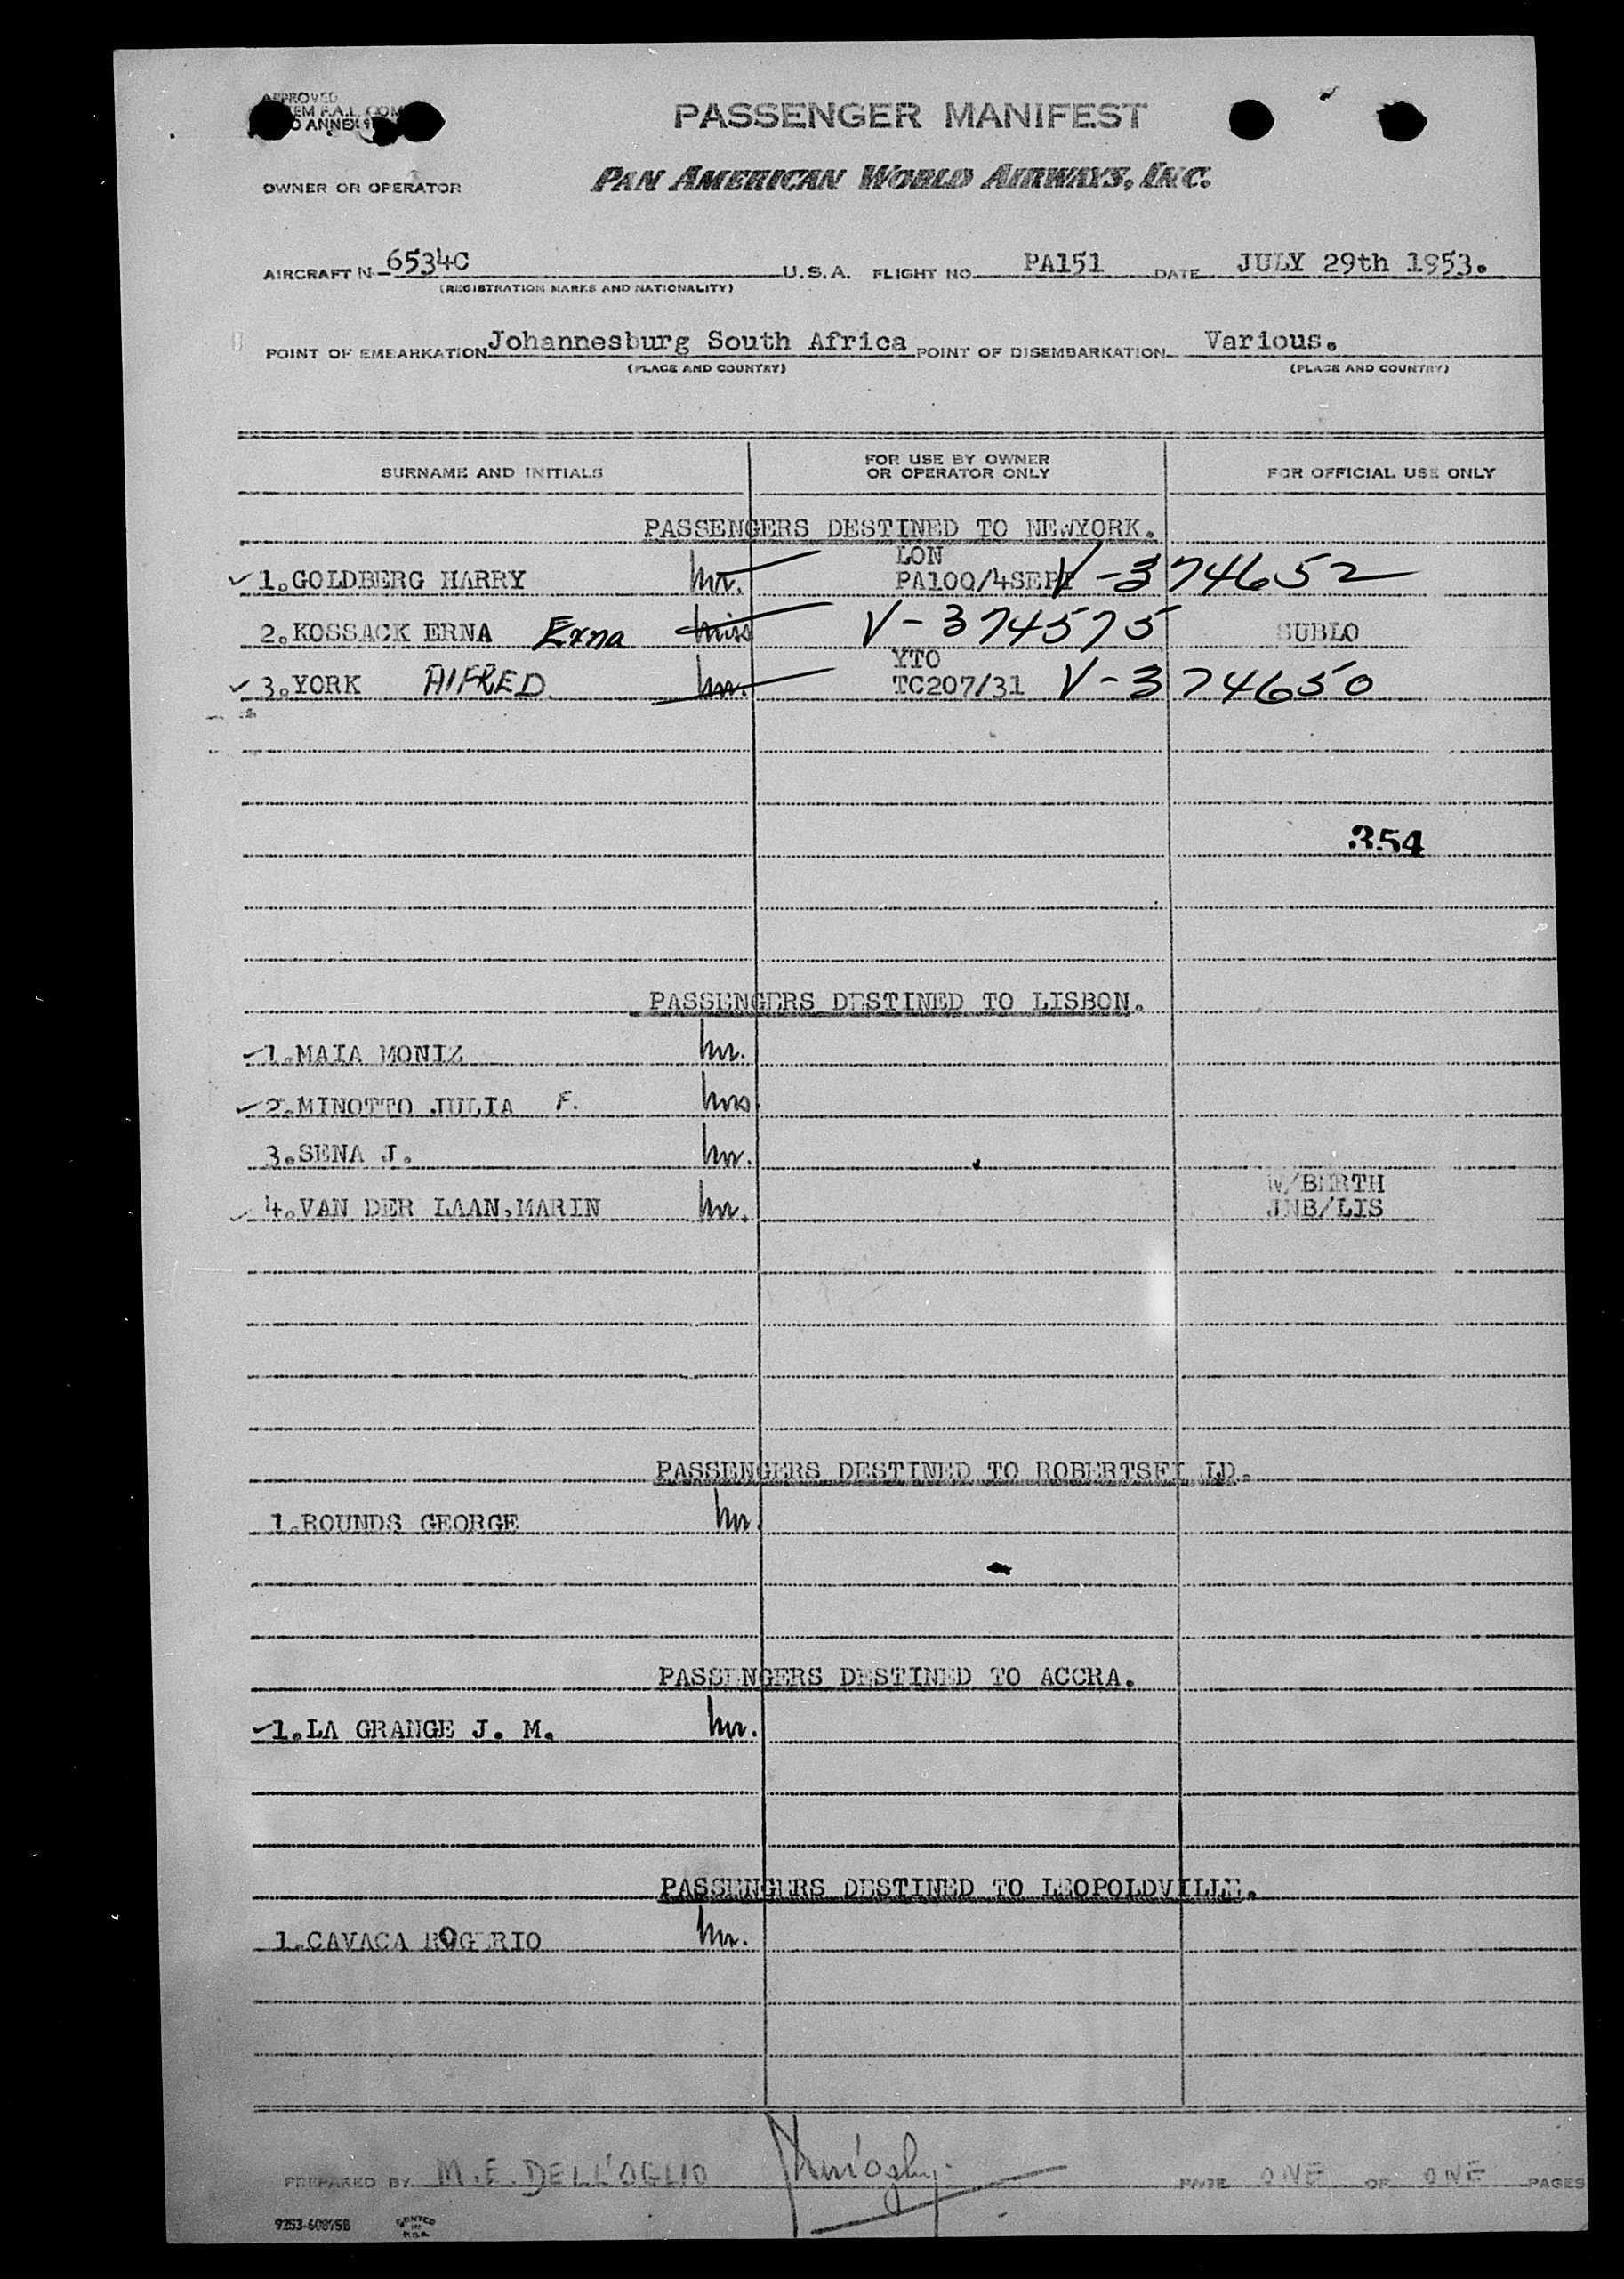 APPROVED
EM F.A.L. COM
O ANNEX 9
PASSENGER MANIFEST
OWNER OR OPERATOR PAN AMERICAN WORLD AIRWAYS, INC.
AIRCRAFT N 6534C U.S.A. FLIGHT NO. PA151 DATE JULY 29th 1953.
(REGISTRATION MARKS AND NATIONALITY)
POINT OF EMBARKATION Johannesburg South Africa POINT OF DISEMBARKATION Various.
(PLACE AND COUNTRY) (PLACE AND COUNTRY)
SURNAME AND INITIALS FOR USE BY OWNER OR OPERATOR ONLY FOR OFFICIAL USE ONLY
PASSENGERS DESTINED TO NEWYORK.
LON
1.GOLDBERG HARRY Mr. PA100/4SEPT V-374652
2.KOSSACK ERNA Erna Miss V-374575 SUBLO
YTO
3.YORK AlFRED Mr. TC207/31 V-374650
354
PASSENGERS DESTINED TO LISBON.
1.MAIA MONIZ Mr.
2.MINOTTO JULIA F. Mrs.
3.SENA J. Mr.
W/BERTH
4.VAN DER LAAN,MARIN Mr. JNB/LIS
PASSENGERS DESTINED TO ROBERTSFI LD.
1.ROUNDS GEORGE Mr.
PASSENGERS DESTINED TO ACCRA.
1.LA GRANGE J. M. Mr.
PASSENGERS DESTINED TO LEOPOLDVILLE.
1.CAVACA ROGERIO Mr.
PREPARED BY M.E. DELL'OGLIO PAGE ONE OF ONE PAGES
9253-60895B PRINTED IN U.S.A.